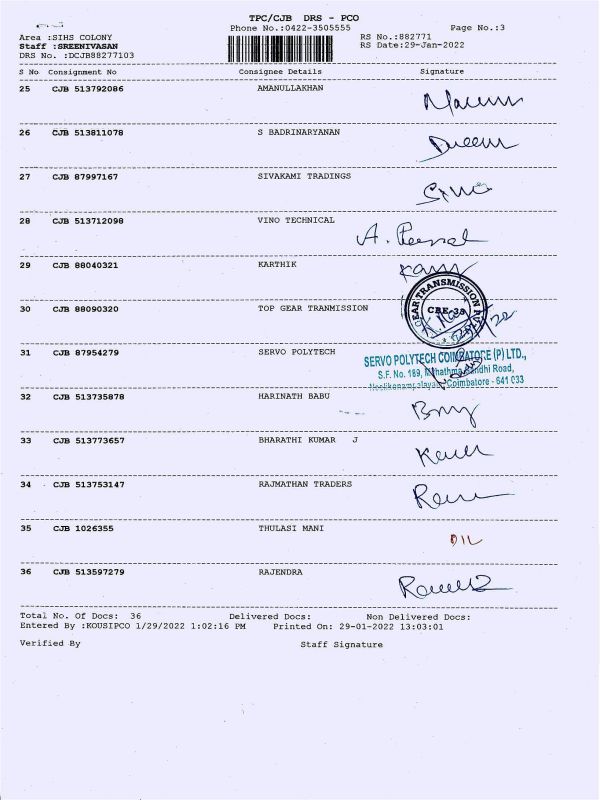 TPC/CJB DRS - PCO
Phone No.:0422-3505555 Page No.:3
Area :SIHS COLONY RS No.:882771
Staff :SREENIVASAN RS Date:29-Jan-2022
DRS No. :DCJB88277103
S No Consignment No Consignee Details Signature
25 CJB 513792086 AMANULLAKHAN
26 CJB 513811078 S BADRINARYANAN
27 CJB 87997167 SIVAKAMI TRADINGS
28 CJB 513712098 VINO TECHNICAL
29 CJB 88040321 KARTHIK
30 CJB 88090320 TOP GEAR TRANMISSION
GEAR TRANSMISSION
CBE-38
31 CJB 87954279 SERVO POLYTECH
SERVO POLYTECH COIMBATORE (P) LTD.,
S.F. No. 189, Mahathma Gandhi Road,
Coimbatore - 641 033
32 CJB 513735878 HARINATH BABU
33 CJB 513773657 BHARATHI KUMAR J
34 CJB 513753147 RAJMATHAN TRADERS
35 CJB 1026355 THULASI MANI
36 CJB 513597279 RAJENDRA
Total No. Of Docs: 36 Delivered Docs: Non Delivered Docs:
Entered By :KOUSIPCO 1/29/2022 1:02:16 PM Printed On: 29-01-2022 13:03:01
Verified By Staff Signature